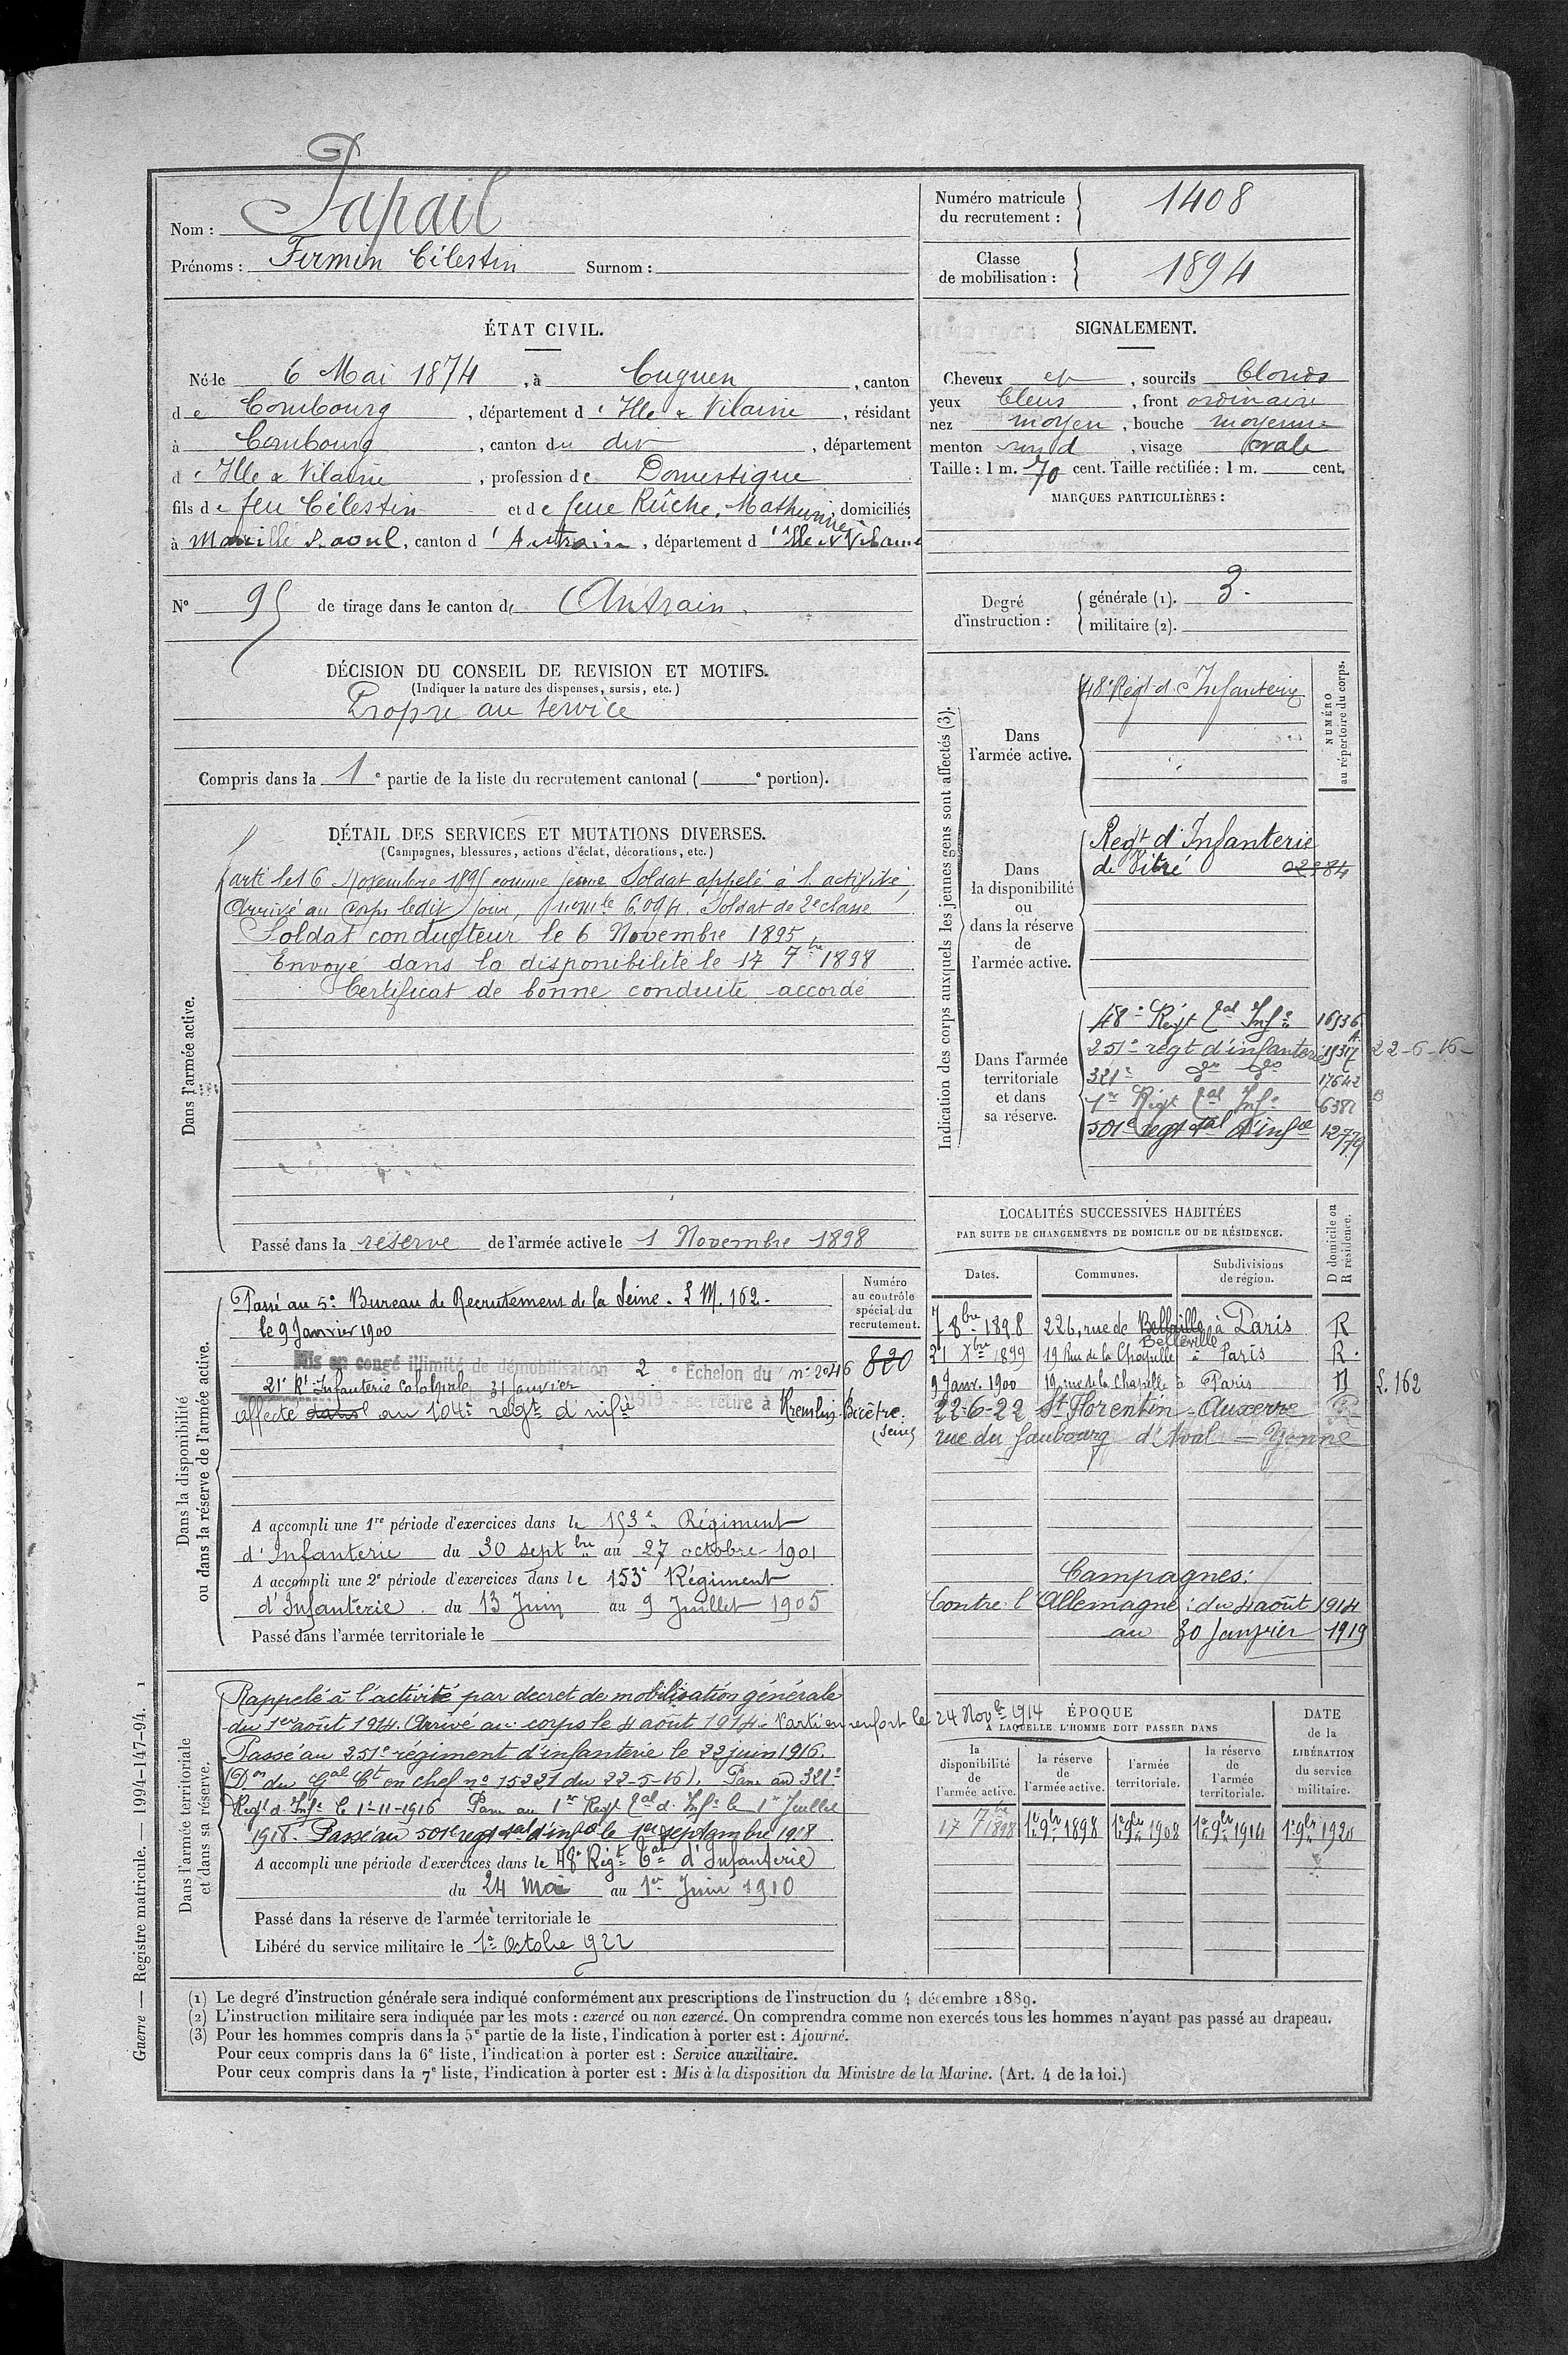 Nom : Papail
Prénoms : Firmin Célestin Surnom :
Numéro matricule du recrutement : 1408
Classe de mobilisation : 1894
ÉTAT CIVIL.
Né le 6 Mai 1874, à Cuguen, canton
de Combourg, département d'Ille & Vilaine, résidant
à Combourg, canton du dit, département
d'Ille & Vilaine, profession de Domestique
fils de feu Célestin et de feue Rûche, Mathurine, domiciliés
à Marcillé Raoul, canton d'Antrain, département d'Ille et Vilaine
N° 95 de tirage dans le canton d'Antrain.
SIGNALEMENT.
Cheveux et, sourcils blonds
yeux bleus, front ordinaire
nez moyen, bouche moyenne
menton rond, visage ovale
Taille : 1 m. 70 cent. Taille rectifiée : 1 m. cent.
MARQUES PARTICULIÈRES :
Degré d'instruction :
générale (1). 3.
militaire (2).
DÉCISION DU CONSEIL DE REVISION ET MOTIFS.
(Indiquer la nature des dispenses, sursis, etc.)
Propre au service
Compris dans la 1e partie de la liste du recrutement cantonal ( e portion).
DÉTAIL DES SERVICES ET MUTATIONS DIVERSES.
(Campagnes, blessures, actions d'éclat, décorations, etc.)
Dans l'armée active.
Parti le 16 Novembre 1895 comme jeune Soldat appelé à l'activité,
Arrivé au Corps ledit jour, Soldat de 2e classe
Soldat conducteur le 6 Novembre 1895
Envoyé dans la disponibilité le 17 7bre 1898
Certificat de bonne conduite accordé
Passé dans la réserve de l'armée active le 1 Novembre 1898
Indication des corps auxquels les jeunes gens sont affectés (3).
NUMÉRO au répertoire du corps.
Dans l'armée active.
48e Régt d'Infanterie
Dans la disponibilité ou dans la réserve de l'armée active.
Regt d'Infanterie
de Vitré
Dans l'armée territoriale et dans sa réserve.
48e Régt tal Infie 16936
251e regt d'infanterie 19317 22-6-16
321e do do 17642
1er Régt tal Infie 6381
501e regt tal d'infie 12779
LOCALITÉS SUCCESSIVES HABITÉES
PAR SUITE DE CHANGEMENTS DE DOMICILE OU DE RÉSIDENCE.
Dates. Communes. Subdivisions de région. D domicile ou R résidence.
7 8bre 1898 226, rue de Belleville à Paris R
Belleville
21 Xbre 1899 19 Rue de la Chapelle à Paris R.
9 Janv. 1900 19, rue de la Chapelle à Paris D L. 162
22-6-22 St Florentin - Auxerre R
rue du faubourg d'Aval - Yonne
Campagnes :
Contre l'Allemagne : du 4 août 1914
au 30 Janvier 1919
Dans la disponibilité ou dans la réserve de l'armée active.
Numéro au contrôle spécial du recrutement.
820
Passé au 5e Bureau de Recrutement de la Seine. L M. 162.
le 9 Janvier 1900
Mis en congé illimité de démobilisation 2e Echelon du n° 2046
21e Rt Infanterie Coloniale 31 Janvier 1919 se retire à Kremlin Bicêtre. (Seine)
affecté dans au 104e regt d'infie
A accompli une 1re période d'exercices dans le 153e Régiment
d'Infanterie du 30 septbre au 27 octobre 1901
A accompli une 2e période d'exercices dans le 153e Régiment
d'Infanterie du 13 Juin au 9 Juillet 1905
Passé dans l'armée territoriale le
Dans l'armée territoriale et dans sa réserve.
Rappelé à l'activité par decret de mobilisation générale
du 1er août 1914. Arrivé au corps le 4 août 1914. Parti en renfort le 24 Novbre 1914
Passé au 251e régiment d'infanterie le 22 juin 1916.
(Don du Gal Ct en chef n° 15221 du 22-5-16). Passé au 321e
Regt d'Infie le 1-11-1916 Passé au 1er Regt tal d'Infie le 1er Juillet
1918. Passé au 501e regt tal d'infie le 1er septembre 1918
A accompli une période d'exercices dans le 48e Régt tal d'Infanterie
du 24 Mai au 1er Juin 1910
Passé dans la réserve de l'armée territoriale le
Libéré du service militaire le 1er Octobre 922
ÉPOQUE À LAQUELLE L'HOMME DOIT PASSER DANS
la disponibilité de l'armée active. la réserve de l'armée active. l'armée territoriale. la réserve de l'armée territoriale. DATE de la LIBÉRATION du service militaire.
17 7bre 1898 1er 9bre 1898 1er 9bre 1908 1er 9bre 1914 1er 9bre 1920
(1) Le degré d'instruction générale sera indiqué conformément aux prescriptions de l'instruction du 4 décembre 1889.
(2) L'instruction militaire sera indiquée par les mots : exercé ou non exercé. On comprendra comme non exercés tous les hommes n'ayant pas passé au drapeau.
(3) Pour les hommes compris dans la 5e partie de la liste, l'indication à porter est : Ajourné.
Pour ceux compris dans la 6e liste, l'indication à porter est : Service auxiliaire.
Pour ceux compris dans la 7e liste, l'indication à porter est : Mis à la disposition du Ministre de la Marine. (Art. 4 de la loi.)
Guerre — Registre matricule. — 1994-147-94. 1